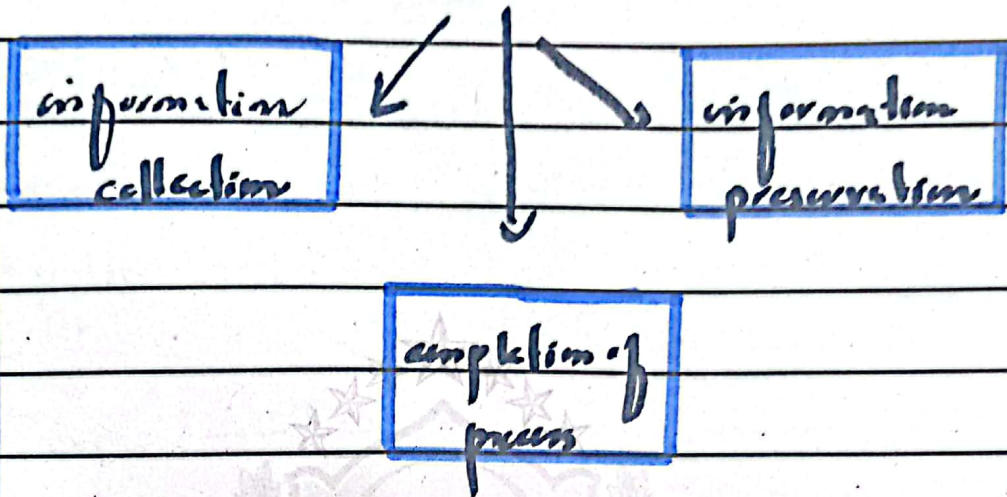 information
collection
information
preservation
completion of
process